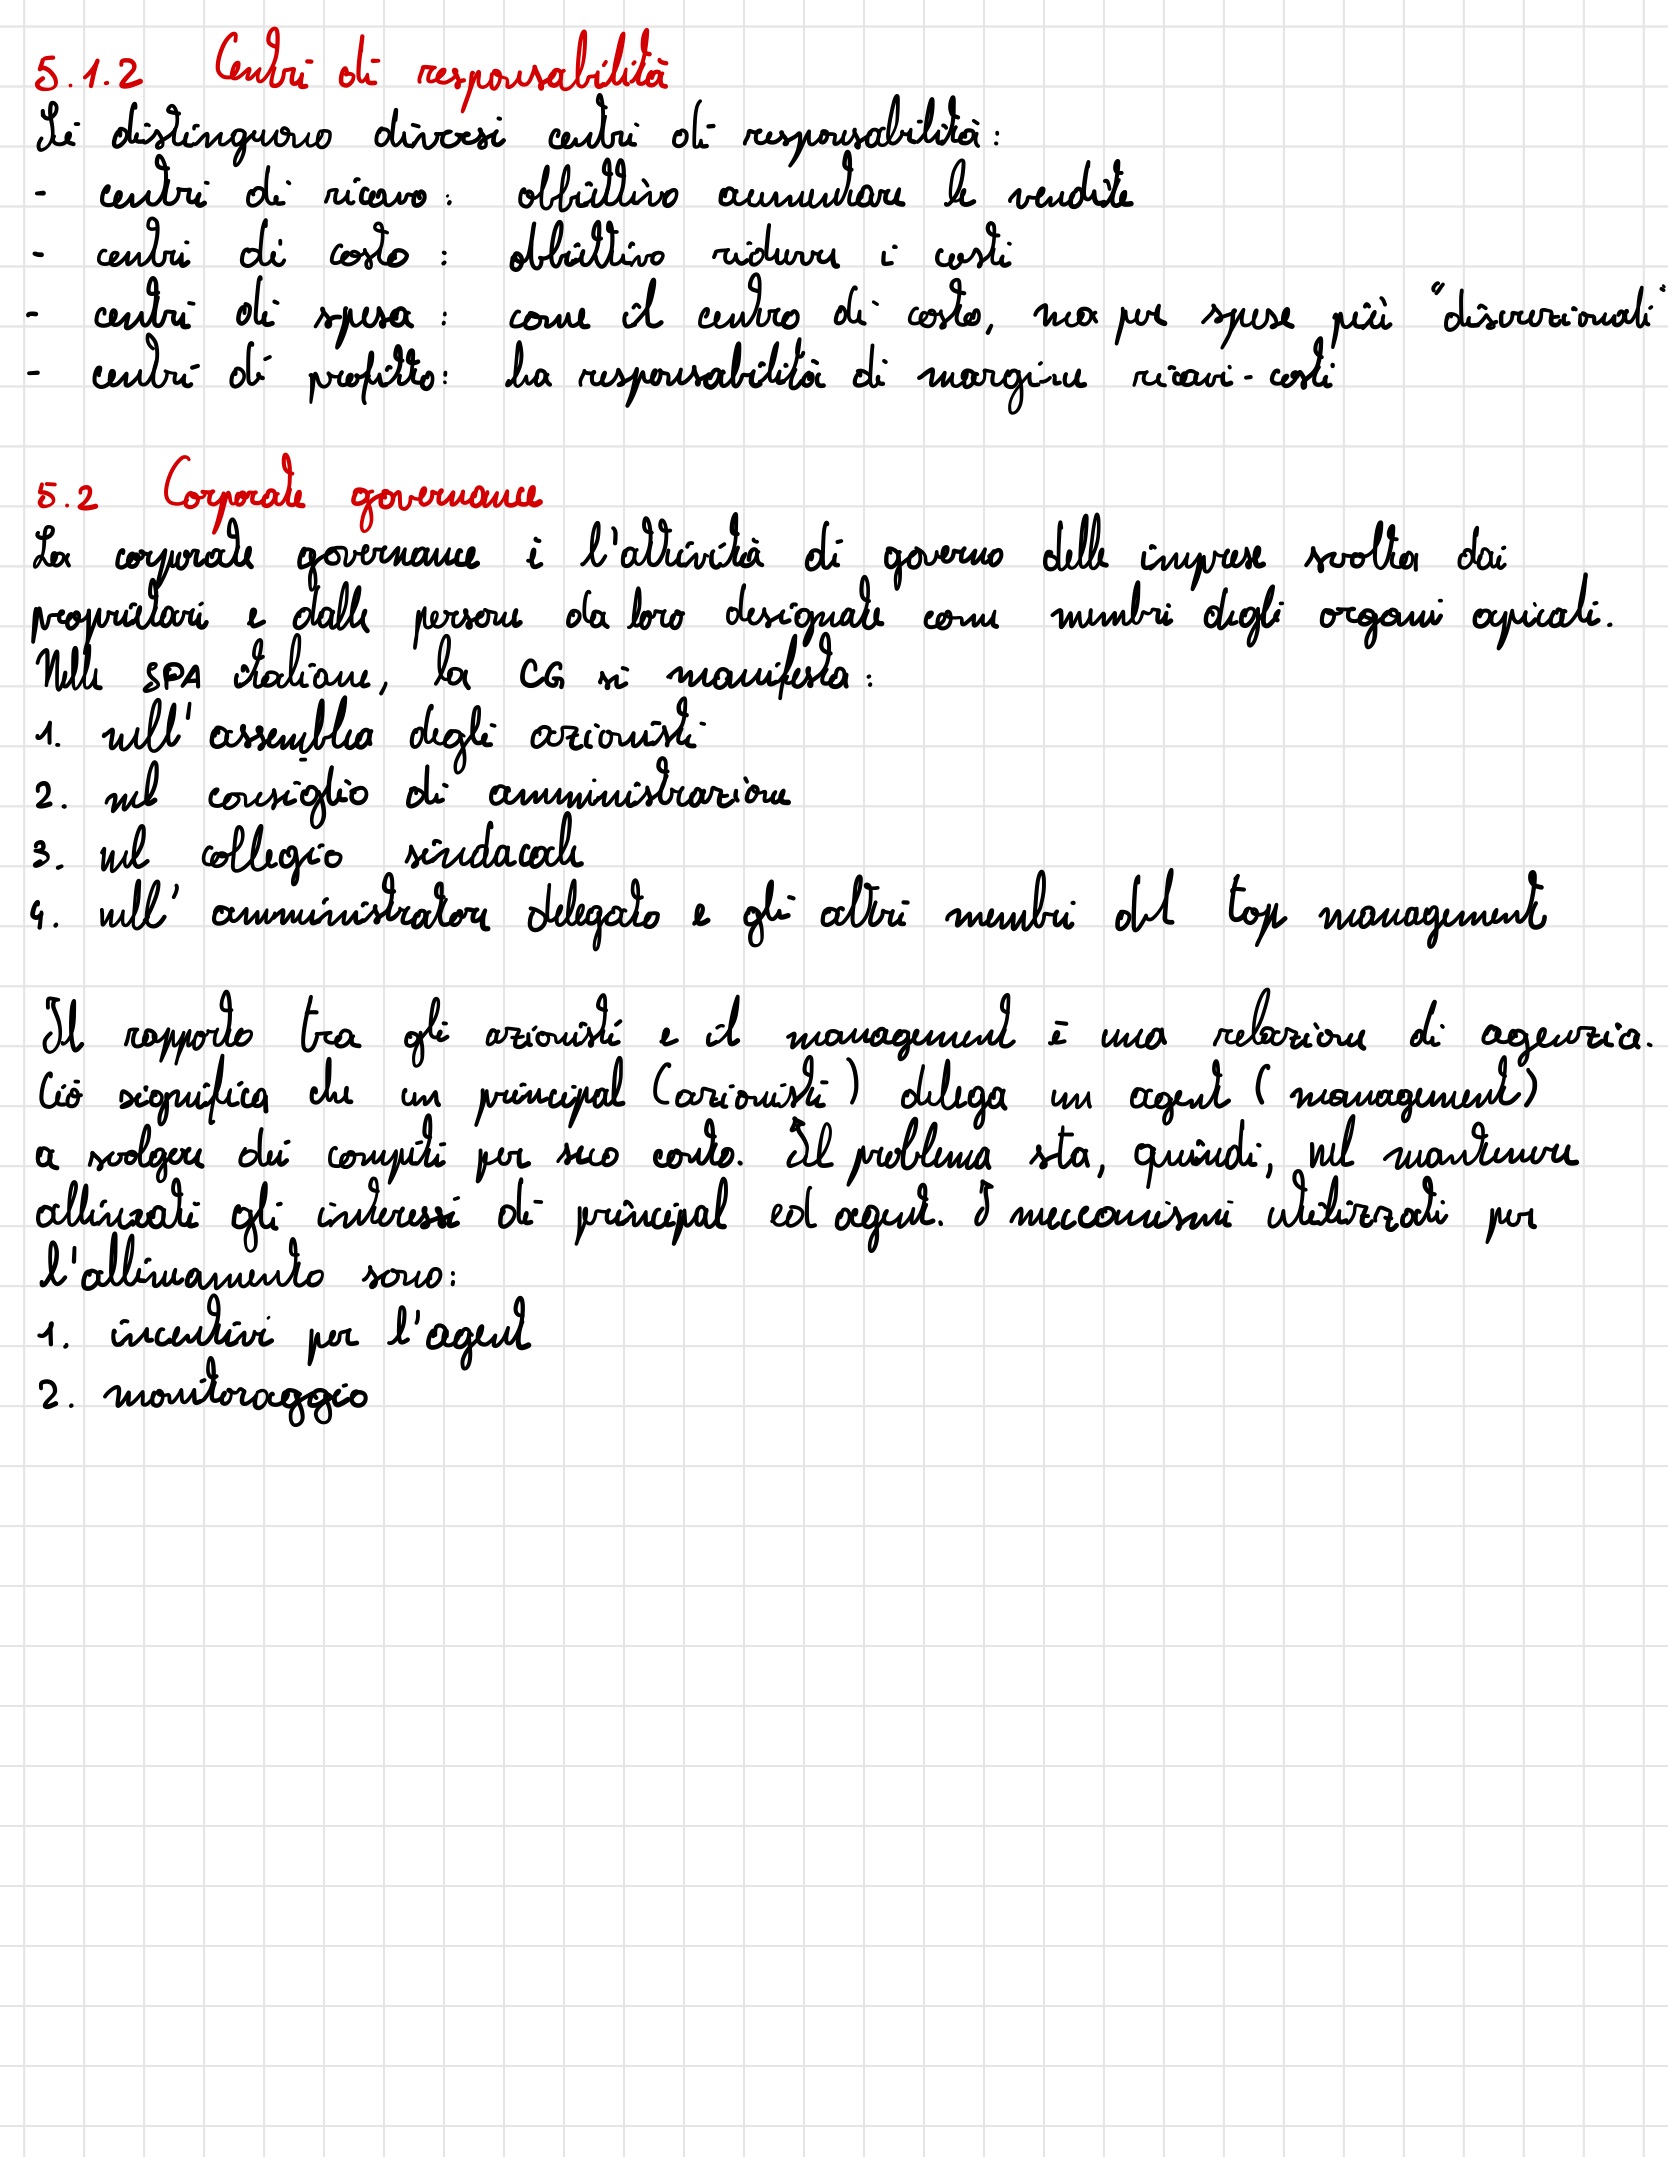 5.1.2 Centri di responsabilità
Si distinguono diversi centri di responsabilità:
- centri di ricavo: obbiettivo aumentare le vendite
- centri di costo: obbiettivo ridurre i costi
- centri di spesa: come il centro di costo, ma per spese più "discrezionali"
- centri di profitto: ha responsabilità di margine ricavi-costi
5.2 Corporate governance
La corporate governance è l'attività di governo delle imprese svolta dai
proprietari e dalle persone da loro designate come membri degli organi apicali.
Nelle SPA italiane, la CG si manifesta:
1. nell'assemblea degli azionisti
2. nel consiglio di amministrazione
3. nel collegio sindacale
4. nell'amministratore delegato e gli altri membri del top management
Il rapporto tra gli azionisti e il management è una relazione di agenzia.
Ciò significa che un principal (azionisti) delega un agent (management)
a svolgere dei compiti per suo conto. Il problema sta, quindi, nel mantenere
allineati gli interessi di principal ed agent. I meccanismi utilizzati per
l'allineamento sono:
1. incentivi per l'agent
2. monitoraggio